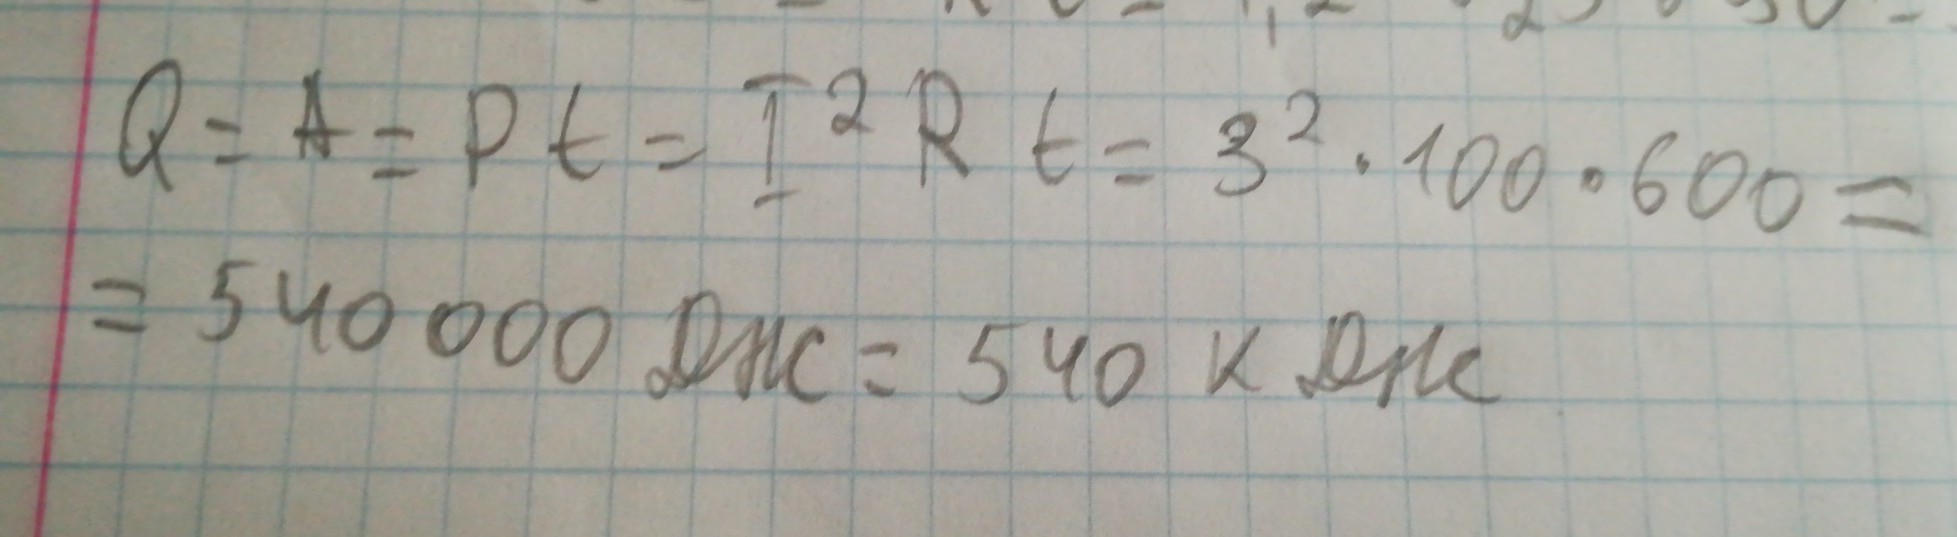 Q = A = Pt = I² R t = 3² · 100 · 600 =
= 540 000 Дж = 540 к Дж